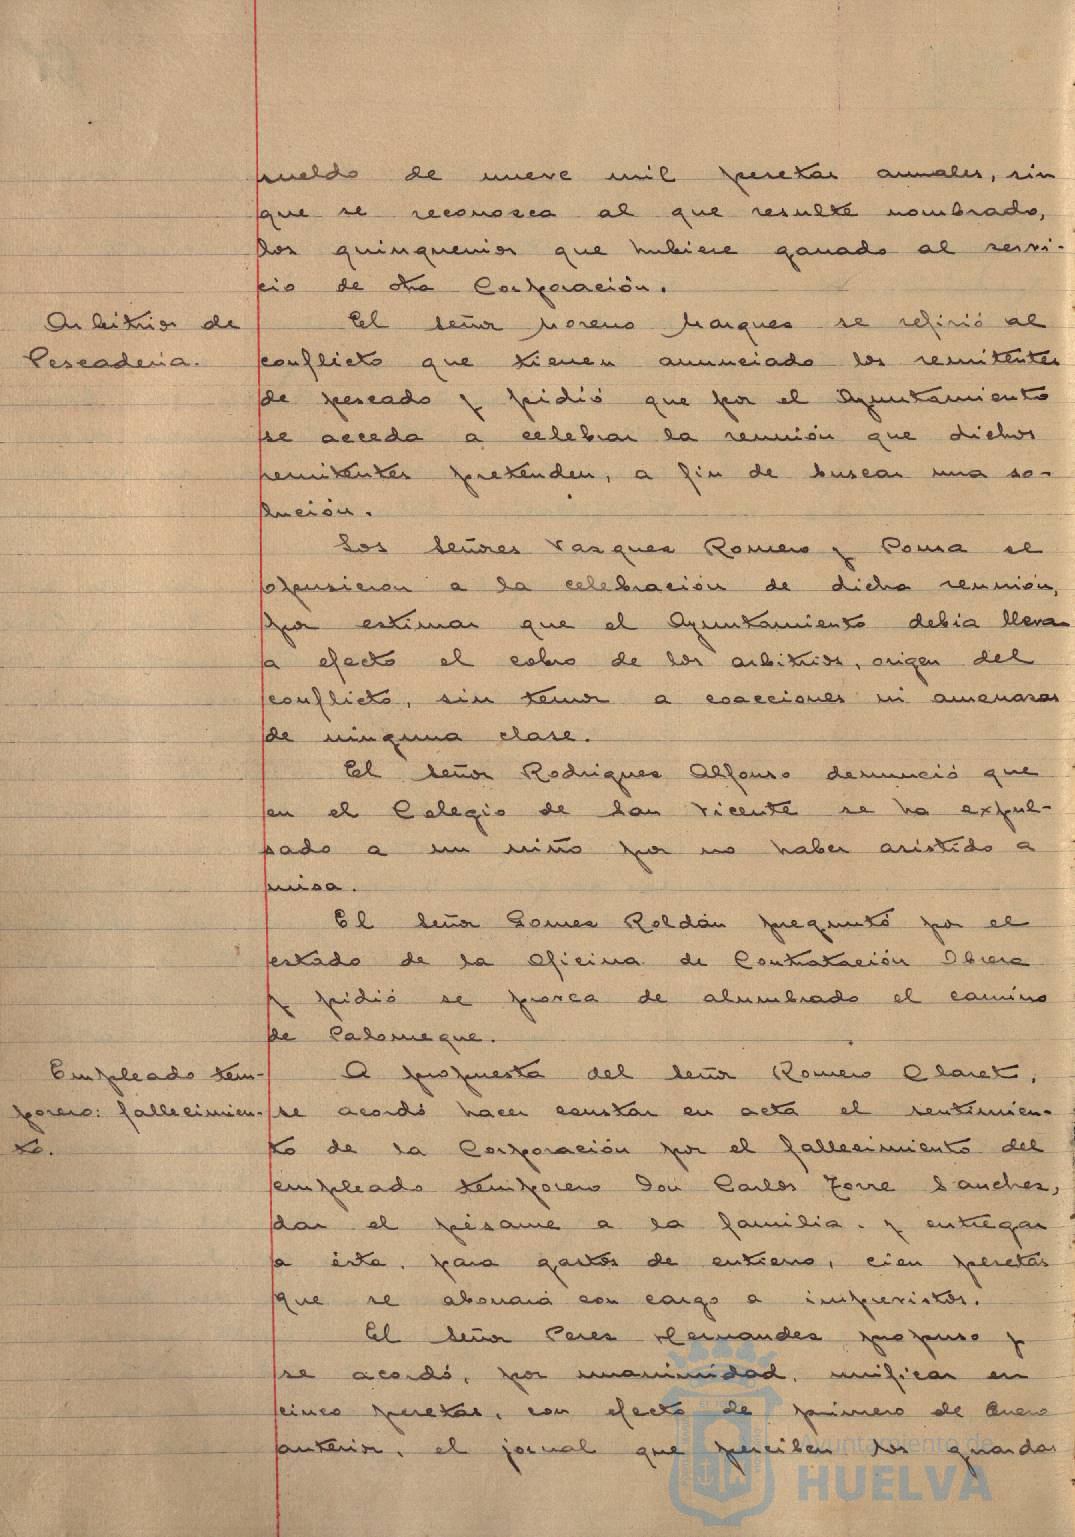 sueldo de nueve mil pesetas anuales, sin
que se reconozca al que resulte nombrado,
los quinquenios que hubiese ganado al servi-
cio de otra Corporación.
Arbitrios de
Pescaderia.
El señor Moreno Marquez se refirió al
conflicto que tienen anunciado los remitentes
de pescado y pidió que por el Ayuntamiento
se acceda a celebrar la reunión que dichos
remitentes pretenden, a fin de buscar una so-
lución.
Los señores Vazquez Romero y Ponsa se
opusieron a la celebración de dicha reunión,
por estimar que el Ayuntamiento debia llevar
a efecto el cobro de los arbitrios, origen del
conflicto, sin temor a coacciones ni amenazas
de ninguna clase.
El señor Rodriguez Alfonso denunció que
en el Colegio de San Vicente se ha expul-
sado a un niño por no haber asistido a
misa.
El señor Gomez Roldán preguntó por el
estado de la Oficina de Contratación Obrera
y pidió se provea de alumbrado el camino
de Palomeque.
Empleado tem-
porero: fallecimien-
to.
A propuesta del señor Romero Claret,
se acordó hacer constar en acta el sentimien-
to de la Corporación por el fallecimiento del
empleado temporero Don Carlos Torre Sanchez,
dar el pésame a la familia. y entregar
a ésta, para gastos de entierro, cien pesetas
que se abonará con cargo a imprevistos.
El señor Perez Hernandez propuso y
se acordó, por unanimidad, unificar en
cinco pesetas, con efecto de primero de Enero
anterior, el jornal que perciben los guardas
Ayuntamiento de
HUELVA